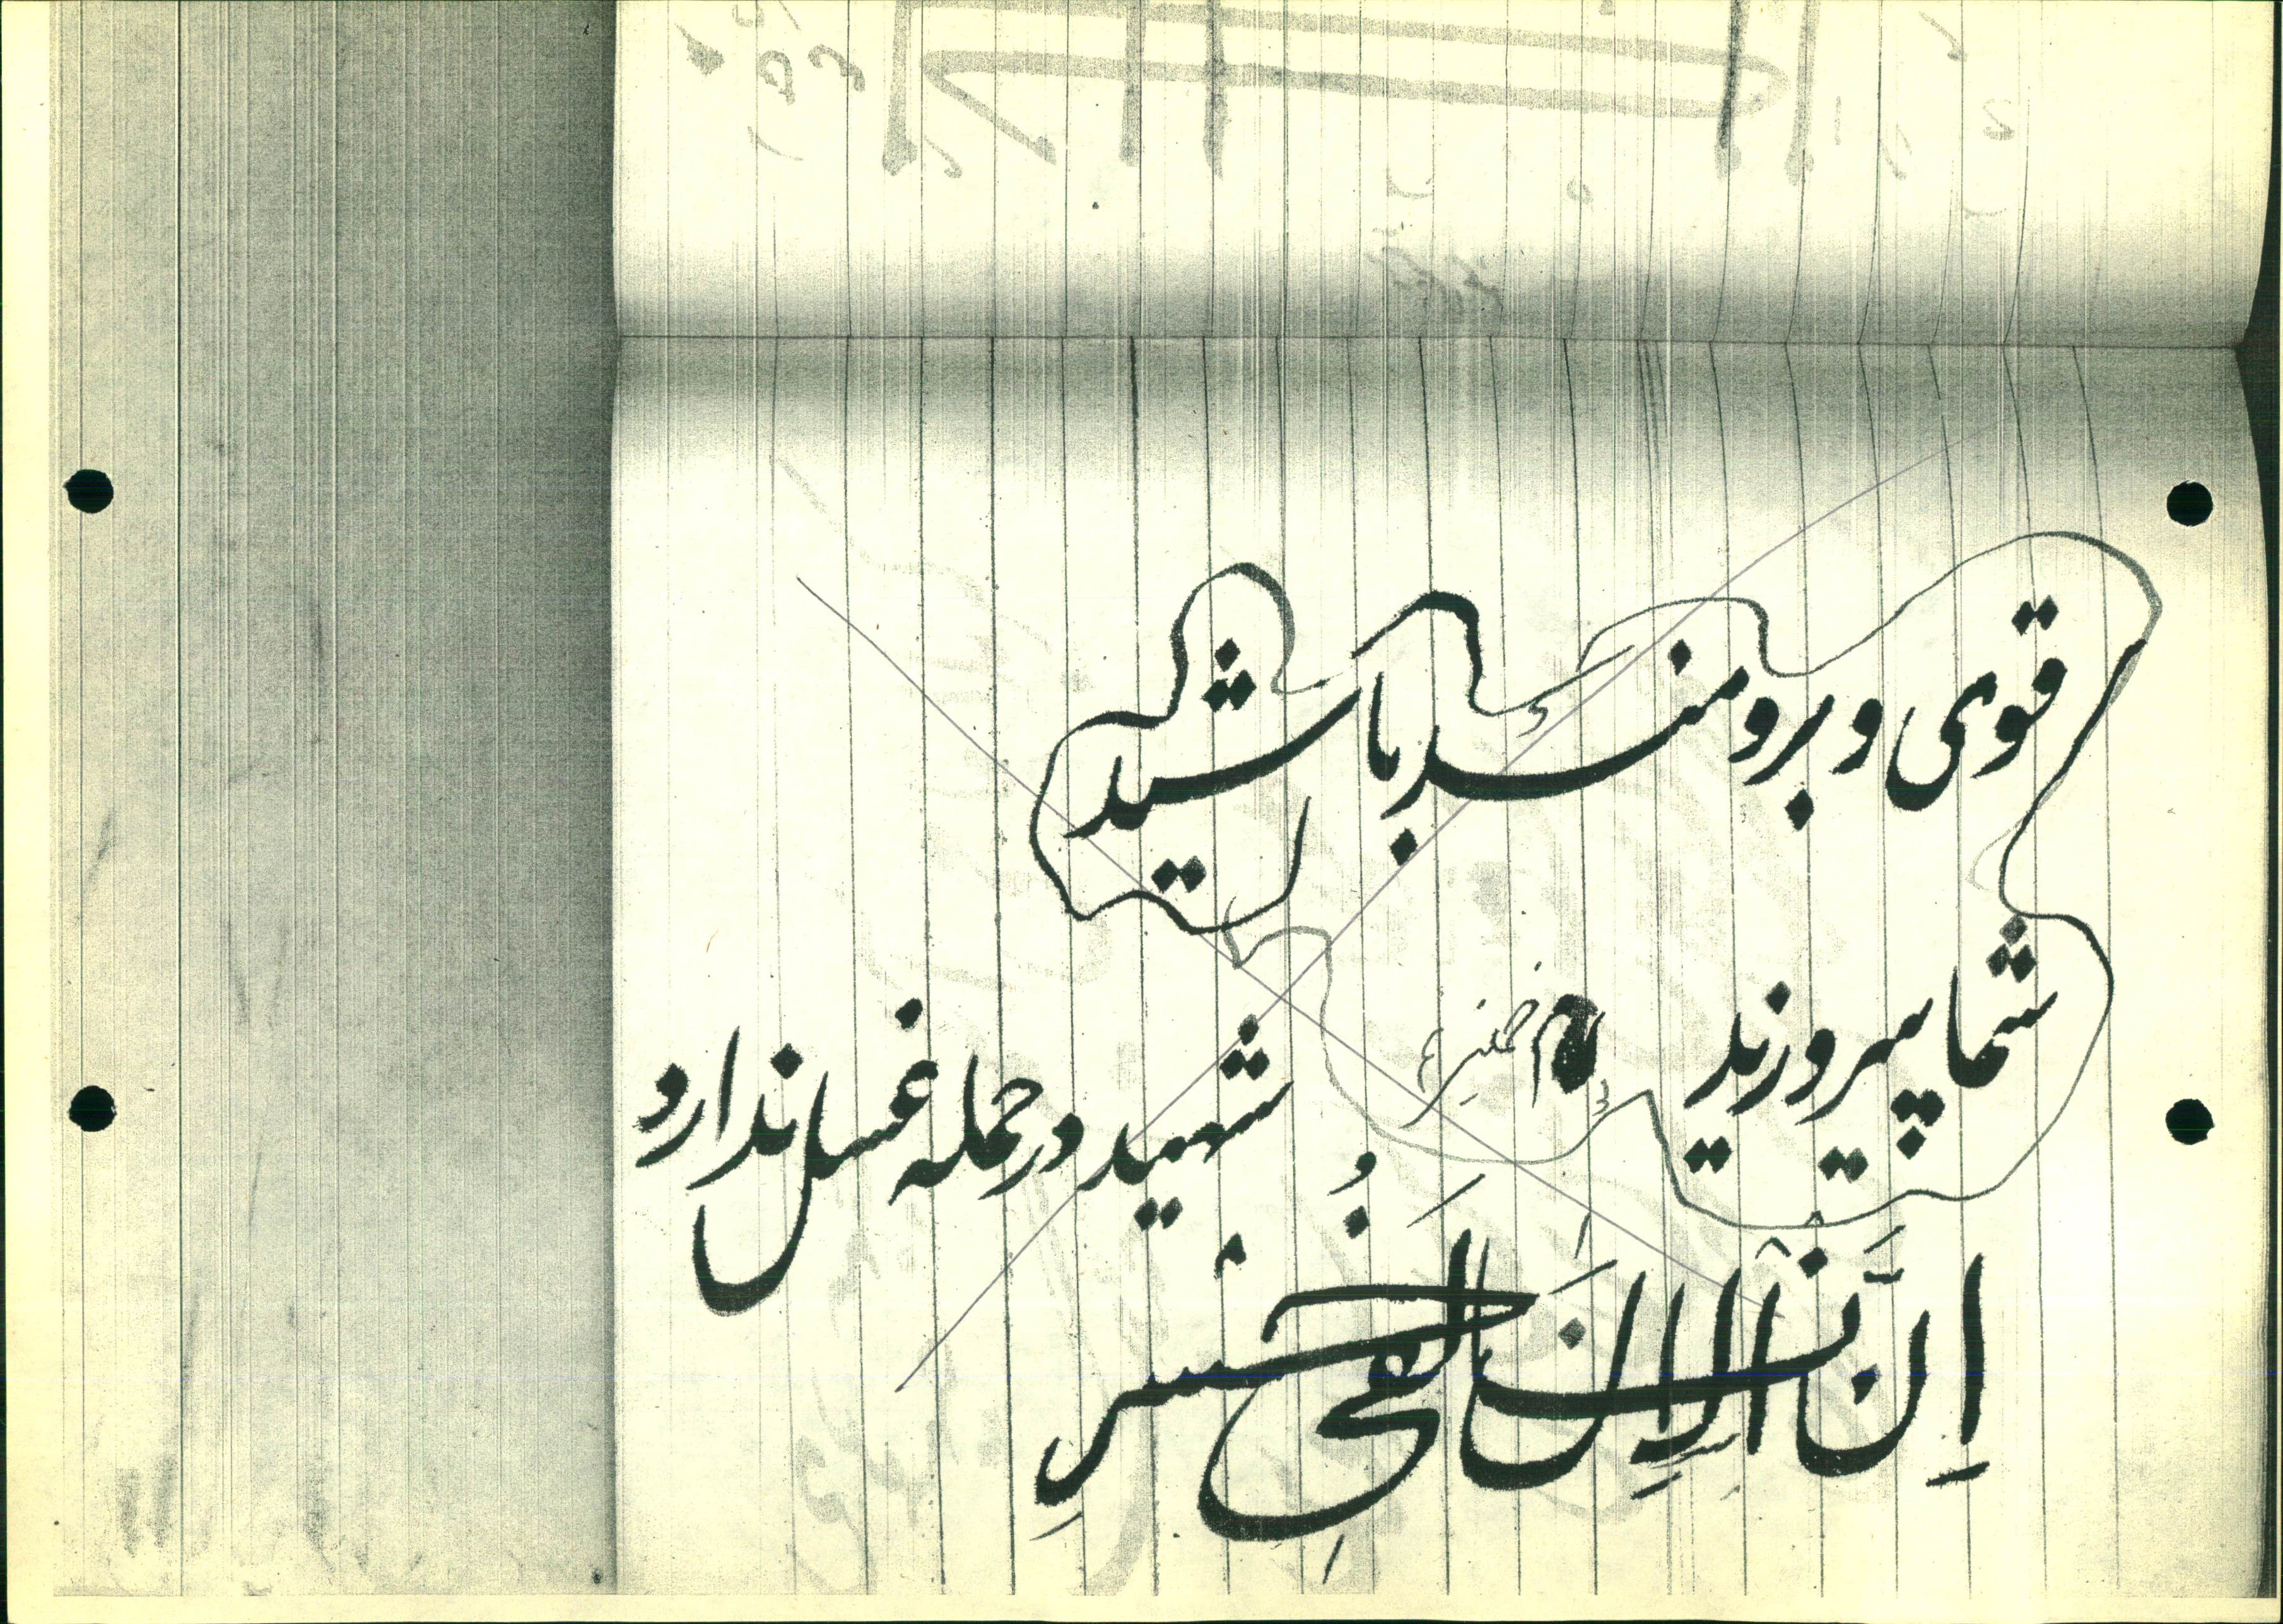 قوی و برومند باشید
شما پیروزید
امام خمینی
شهید در حمله غسل ندارد
اِنَّ الاِنسانَ لَفی خُسرٍ